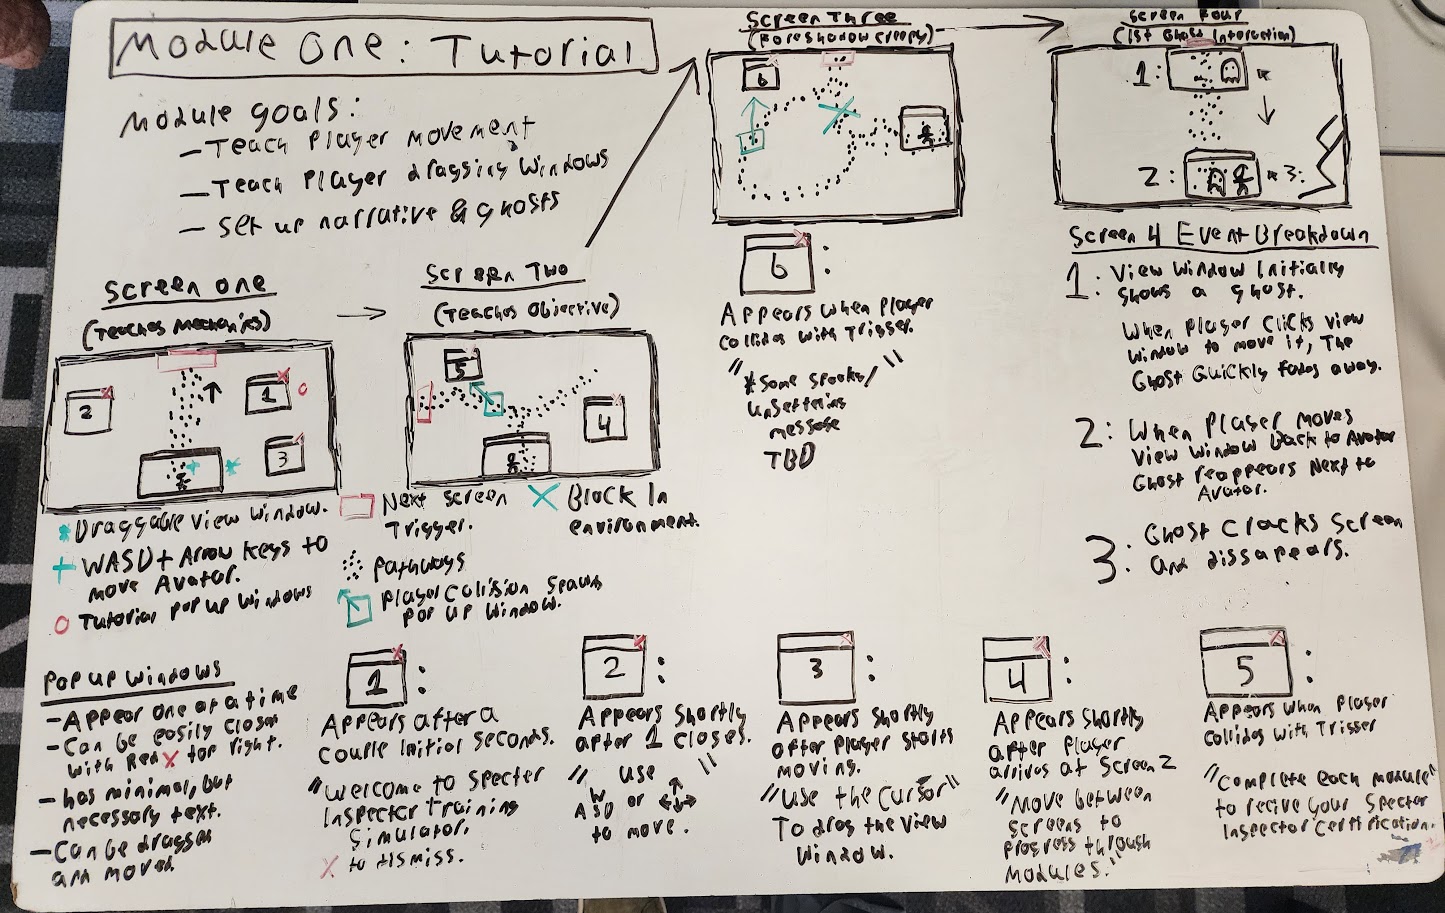 Module One: Tutorial
Module goals:
- Teach Player movement
- Teach Player dragging Windows
- Set up narrative & ghosts
Screen One
(Teaches Mechanics)
2
1
3
Screen Two
(Teaches Objective)
5
4
Screen Three
(Foreshadow Creepy)
6
Screen Four
(1st Ghost Interaction)
1:
2:
3:
* Draggable View Window.
+ WASD + Arrow Keys to
move Avatar.
O Tutorial Pop up Windows
Next Screen
Trigger.
X Block In
environment.
Pathways
Player Collision Spawns
Pop up Window.
6 :
Appears when Player
Collides with Trigger.
"*Some spooky/
unsettling
message
TBD"
Screen 4 Event Breakdown
1: View Window Initially
shows a ghost.
When Player Clicks View
Window to move it, The
Ghost Quickly fades away.
2: When Player moves
View Window back to Avatar
Ghost reappears Next to
Avatar.
3: Ghost Cracks Screen
and dissapears.
Pop up Windows
- Appear one at a time
- Can be easily closed
with Red X top right.
- has minimal, but
necessary text.
- Can be dragged
and moved.
1 :
Appears after a
couple initial seconds.
"Welcome to Specter
Inspector Training
Simulator.
X to dismiss.
2 :
Appears Shortly
after 1 closes.
" Use "
W
ASD or
to move.
3 :
Appears Shortly
after Player starts
moving.
"Use the Cursor"
To drag the View
Window.
4 :
Appears Shortly
after Player
arrives at Screen 2
"Move between
screens to
progress through
Modules."
5 :
Appears when Player
Collides with Trigger
"Complete each module"
to recive your Specter
Inspector Certification.